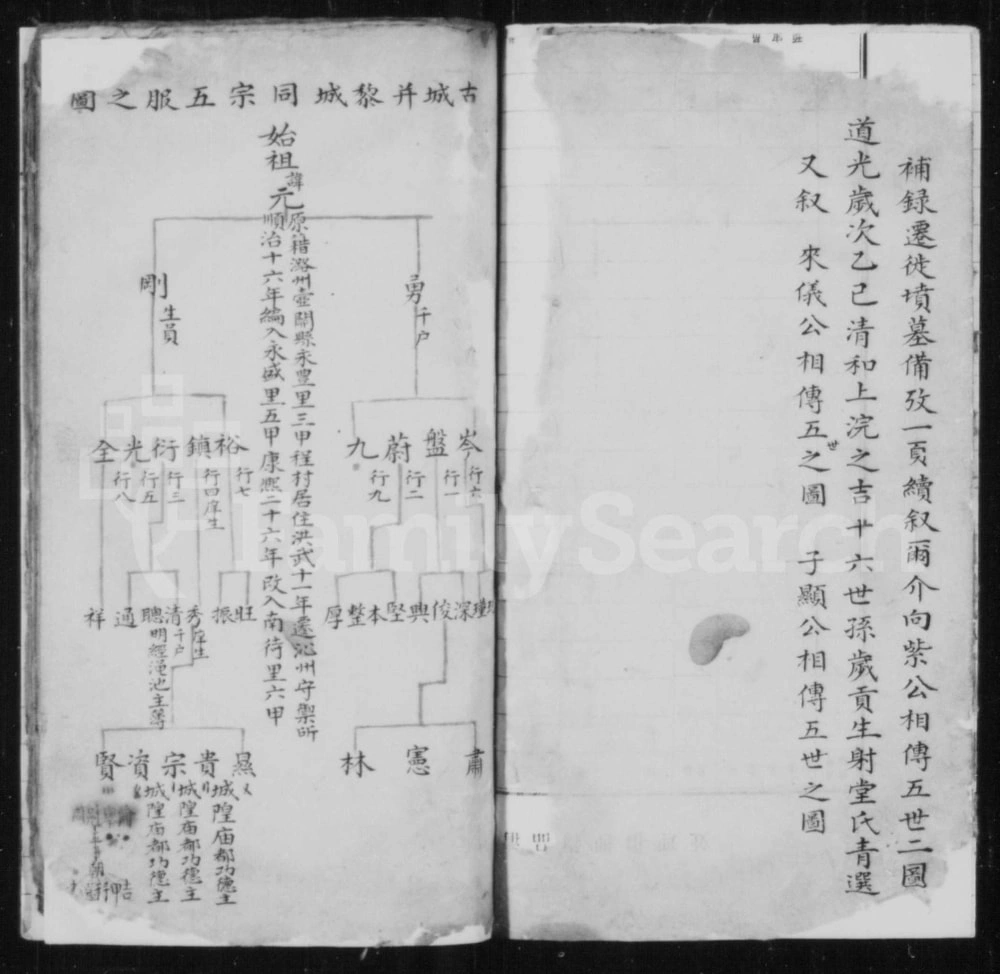 補錄遷徙墳墓備攷一頁續叙爾介向紫公相傳五世二圖
道光歲次乙巳清和上浣之吉十六世孫歲貢生射堂氏青選
又叙 來儀公相傳五世之圖 子顯公相傳五世之圖
古城并黎城同宗五服之圖
始祖諱元
原籍潞州壺關縣永豊里三甲程村居住洪武十一年遷沁州守禦所
順治十六年編入永盛里五甲康熙二十六年改入南荷里六甲
勇千户
剛生員
岑行六
盤行一
蔚行二
九行九
裕行七
鎮行四庠生
衍行三
光行五
全行八
深
俊
興
堅
本
整
厚
旺
振
秀庠生
清千户
聰明經澠池主簿
通
祥
肅
憲
林
貴城隍庙都功德主
宗城隍庙都功德主
資城隍庙都功德主
賢
FamilySearch